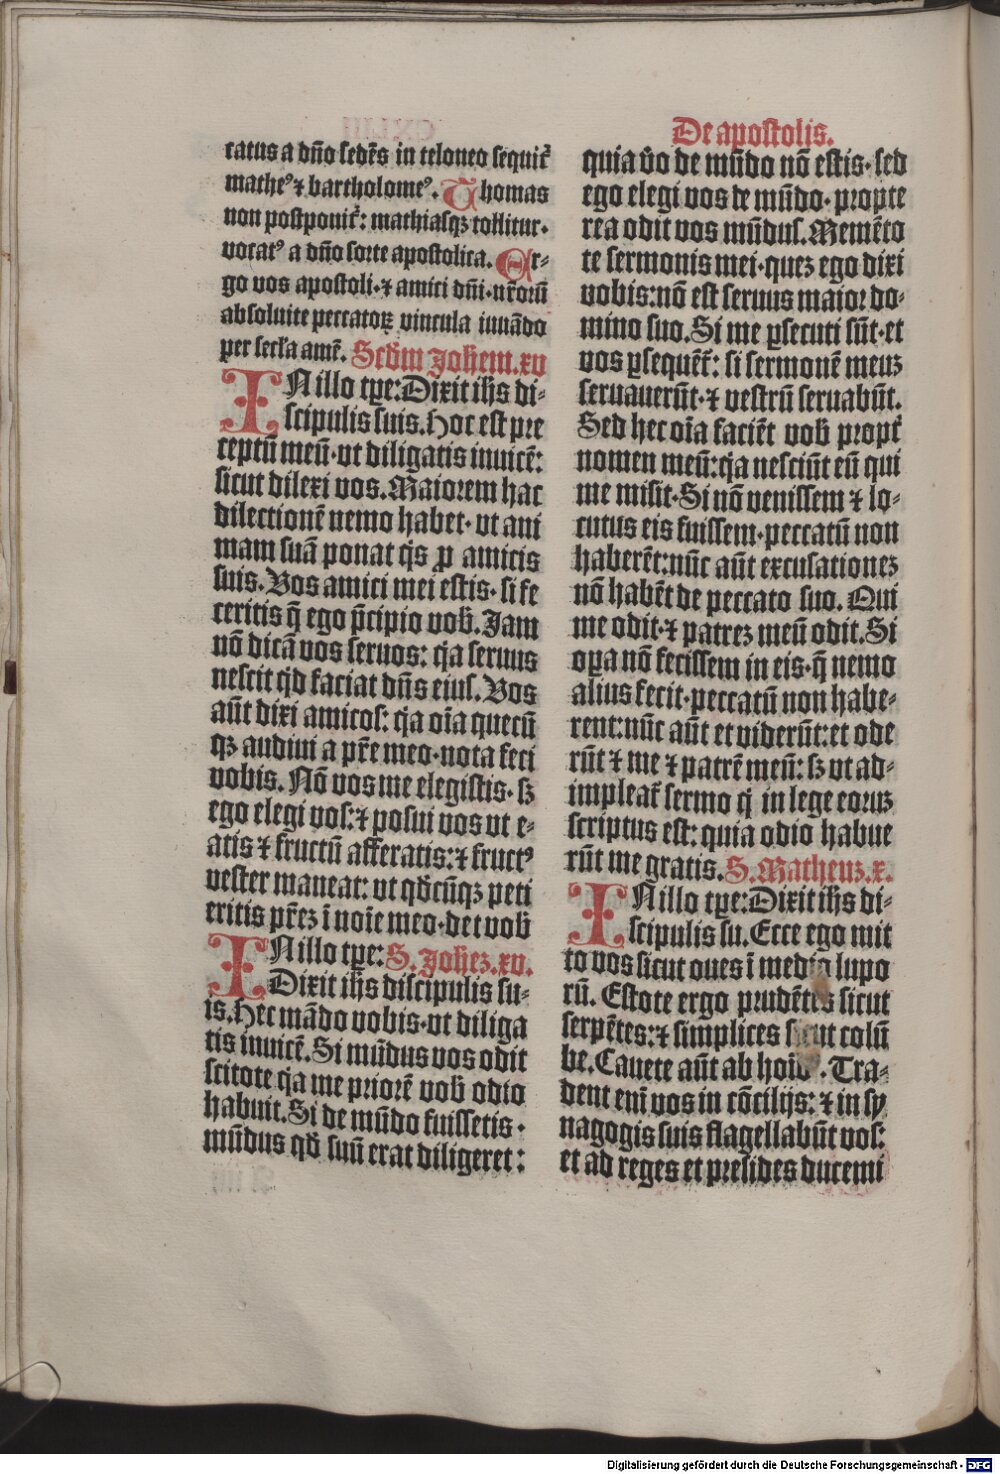 De apostolis.
catus a dn̄o sedēs in teloneo sequit᷑
matheꝰ ⁊ bartholomeꝰ. Thomas
non postponit᷑: mathiasqꝫ tollitur.
vocatꝰ a dn̄o sorte apostolica. Er-
go vos apostoli ⁊ amici dn̄i nr̄orū
absoluite peccatoꝝ vincula iuuādo
per secl'a amē. Scd'm Johem. xv
IN illo tp̄e: Dixit ih̄s di-
scipulis suis. Hoc est pre
ceptū meū. vt diligatis inuicē:
sicut dilexi vos. Maiorem hac
dilectionē nemo habet. vt ani
mam suā ponat qͥs ꝓ amicis
suis. Vos amici mei estis. si fe
ceritis q̄ ego p̄cipio vob̄. Jam
nō dicā vos seruos: qͥa seruus
nescit qͥd faciat dn̄s eius. Vos
aūt dixi amicos: qͥa oīa quecū
qꝫ audiui a pr̄e meo. nota feci
vobis. Nō vos me elegistis. sꝫ
ego elegi vos: ⁊ posui vos vt e-
atis ⁊ fructū afferatis: ⁊ fructꝰ
vester maneat: vt qd̄cūqꝫ peti
eritis pr̄eꝫ ī noīe meo. det vob̄
IN illo tp̄e: S. Joheꝫ. xv.
Dixit ih̄s discipulis su-
is. Hec mādo vobis. vt diliga
tis inuicē. Si mūdus vos odit
scitote qͥa me priorē vob̄ odio
habuit. Si de mūdo fuissetis.
mūdus qd̄ suū erat diligeret:
quia v̄o de mūdo nō estis. sed
ego elegi vos de mūdo. propte
rea odit vos mūdus. Memēto
te sermonis mei. queꝫ ego dixi
vobis: nō est seruus maior do-
mino suo. Si me ꝑsecuti sūt. et
vos ꝑsequēt᷑: si sermonē meuꝫ
seruauerūt. ⁊ vestrū seruabūt.
Sed hec oīa faciēt vob̄ propt᷑
nomen meū: qͥa nesciūt eū qui
me misit. Si nō venissem ⁊ lo-
cutus eis fuissem. peccatū non
haberēt: nūc aūt excusationeꝫ
nō habēt de peccato suo. Qui
me odit. ⁊ patreꝫ meū odit. Si
oꝑa nō fecissem in eis. q̄ nemo
alius fecit. peccatū non habe-
rent: nūc aūt et viderūt: et ode
rūt ⁊ me ⁊ patrē meū: sꝫ vt ad-
impleat᷑ sermo qͥ in lege eoruꝫ
scriptus est: quia odio habue
rūt me gratis. S. Matheuꝫ. x.
IN illo tp̄e: Dixit ih̄s di-
scipulis su. Ecce ego mit
to vos sicut oues ī medio lupo
rū. Estote ergo prudētes sicut
serpētes: ⁊ simplices sicut colū
be. Cauete aūt ab hoīb. Tra-
dent enī vos in cōcilijs: ⁊ in sy
nagogis suis flagellabūt vos:
et ad reges et presides ducemi
Digitalisierung gefördert durch die Deutsche Forschungsgemeinschaft - DFG